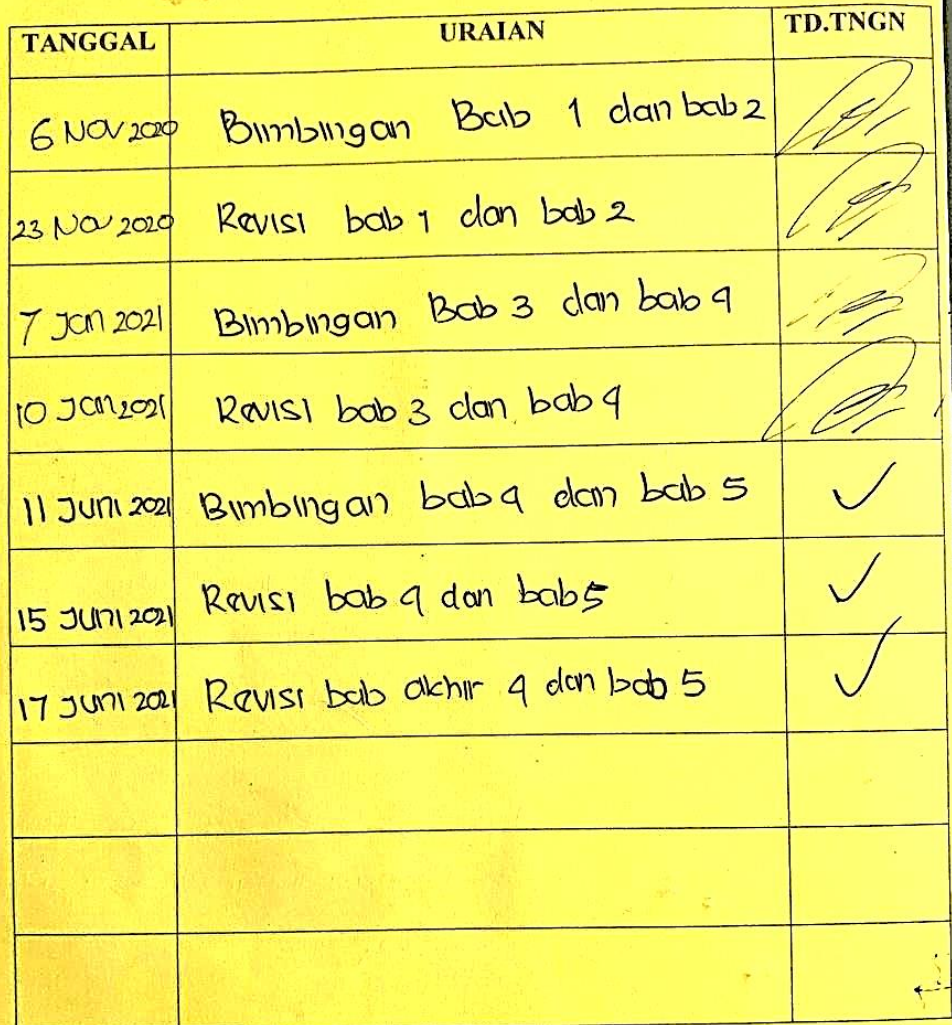 TANGGAL URAIAN TD.TNGN
6 NOV 2020 Bimbingan Bab 1 dan bab 2
23 Nov 2020 Revisi bab 1 dan bab 2
7 Jan 2021 Bimbingan Bab 3 dan bab 4
10 Jan 2021 Revisi bab 3 dan bab 4
11 Juni 2021 Bimbingan bab 4 dan bab 5
15 Juni 2021 Revisi bab 4 dan bab 5
17 Juni 2021 Revisi bab akhir 4 dan bab 5